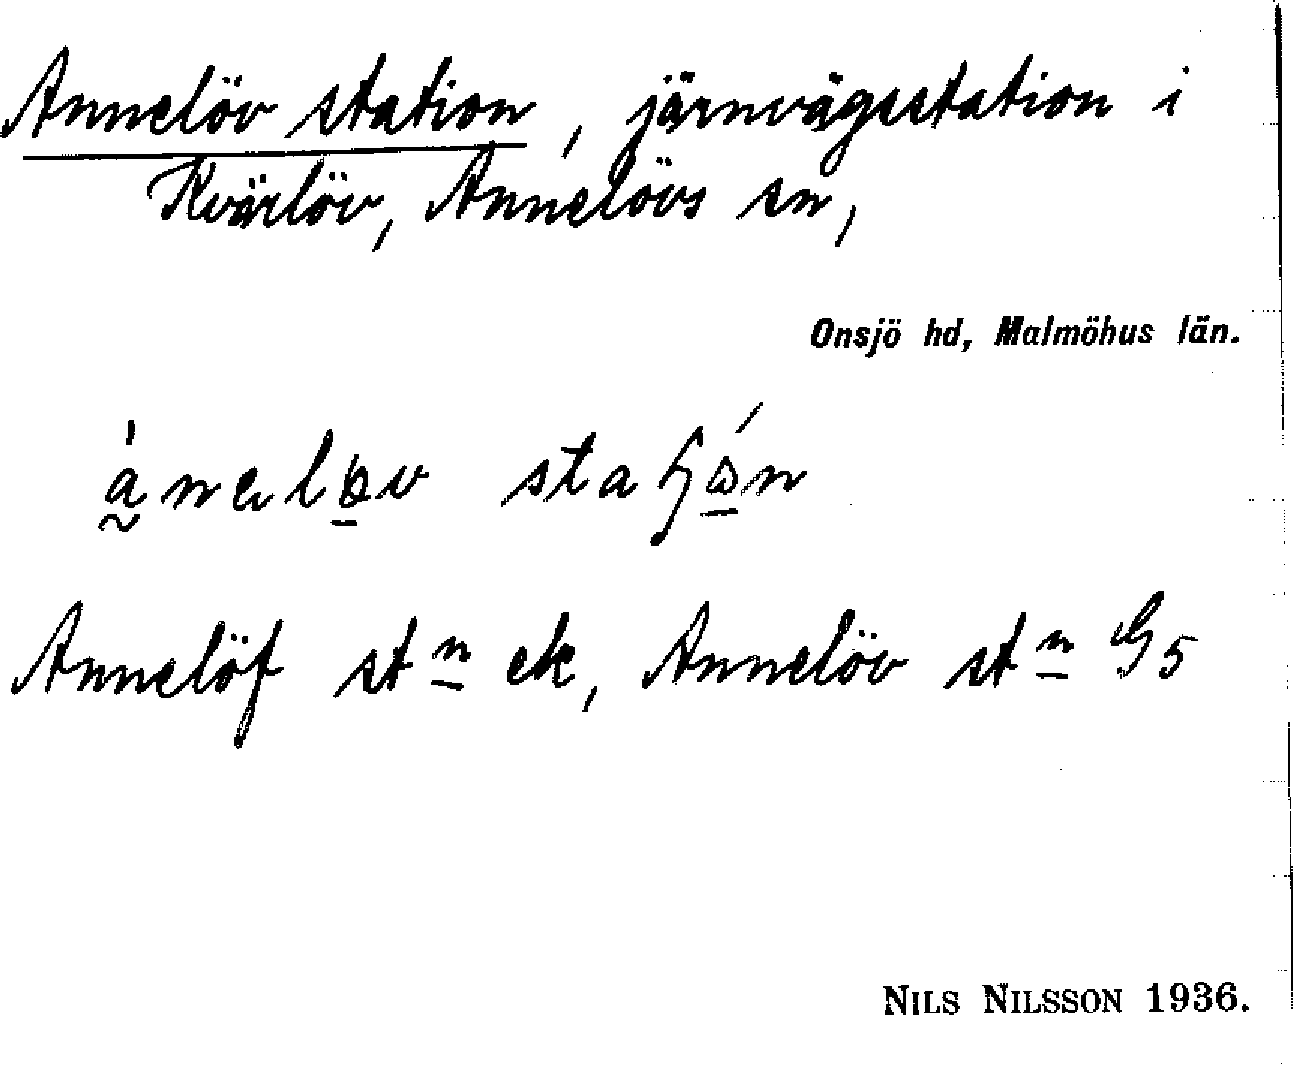 Annelöv station, järnvägsstation i
Kvärlöv, Annelövs sn,
Onsjö hd, Malmöhus län.
Annelöf stn ek, Annelöv stn G5
NILS NILSSON 1936.